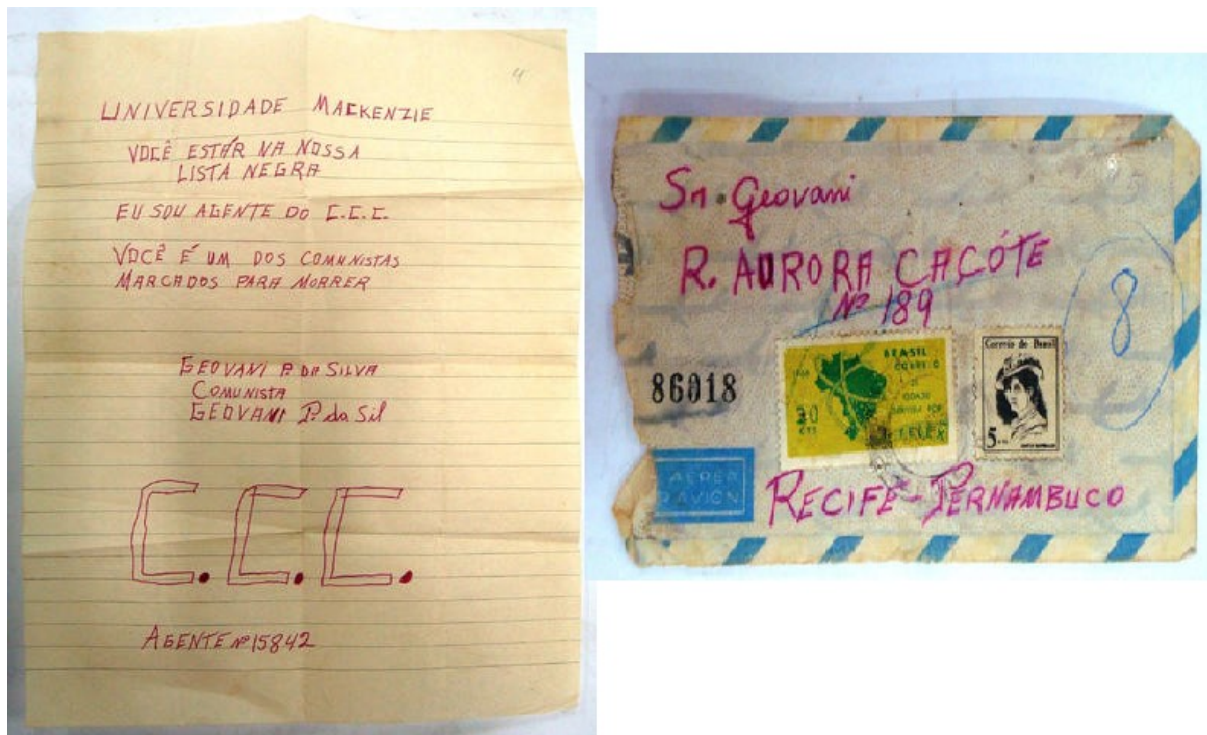 4
UNIVERSIDADE MACKENZIE
VOCÊ ESTÁR NA NOSSA
LISTA NEGRA
EU SOU AGENTE DO C.C.C.
VOCÊ É UM DOS COMUNISTAS
MARCADOS PARA MORRER
GEOVANI P. DA SILVA
COMUNISTA
GEOVANI P. da Sil
C.C.C.
AGENTE Nº 15842
Sr. Geovani
R. AURORA CAÇÓTE
Nº 189
8
86018
BRASIL
CORREIO
TELEX
Correio do Brasil
5
AEREA
AVION
RECIFE - PERNAMBUCO